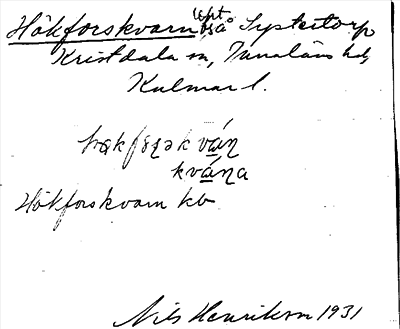 Hökforskvarn uppt. på Systertorp
Kristdala sn, Tunaläns hd,
Kalmar l.
kvána
Hökforskvarn kb
Nils Henrikson 1931